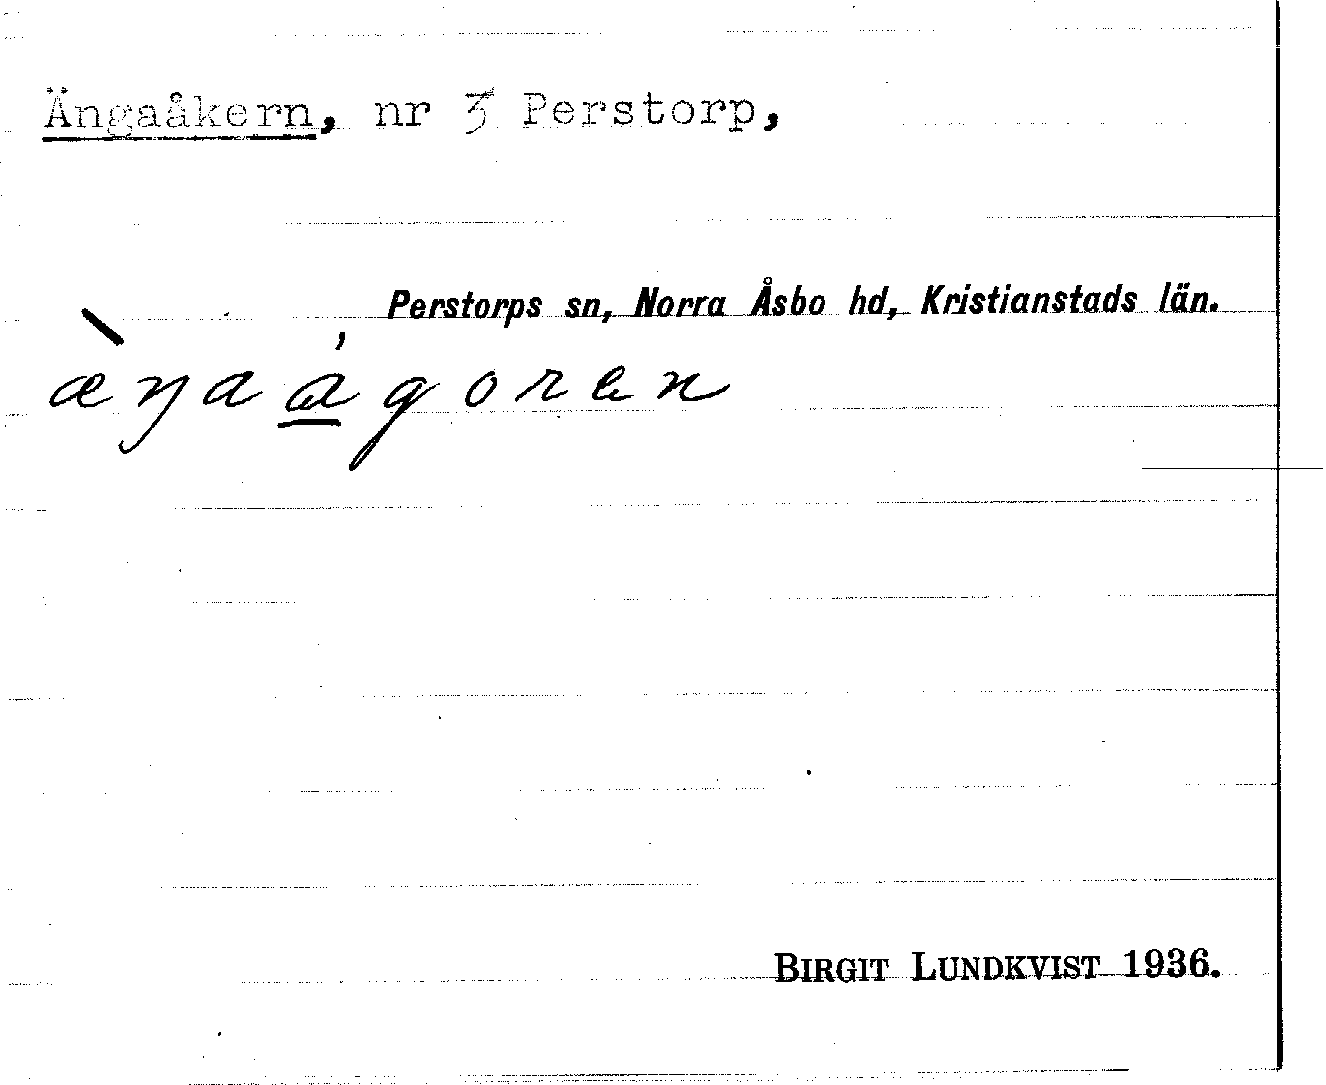 Ängaåkern, nr 3 Perstorp,
Perstorps sn, Norra Åsbo hd, Kristianstads län.
æ̀ŋaágoren
BIRGIT LUNDKVIST 1936.